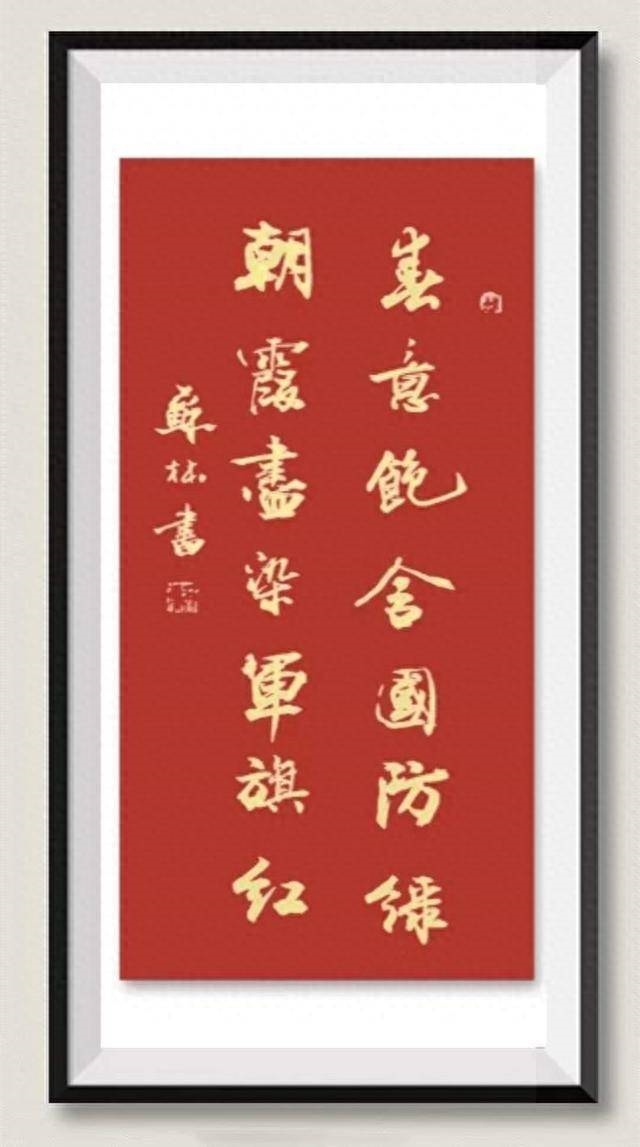 春意飽含國防綠
朝霞盡染軍旗紅
蘇林書